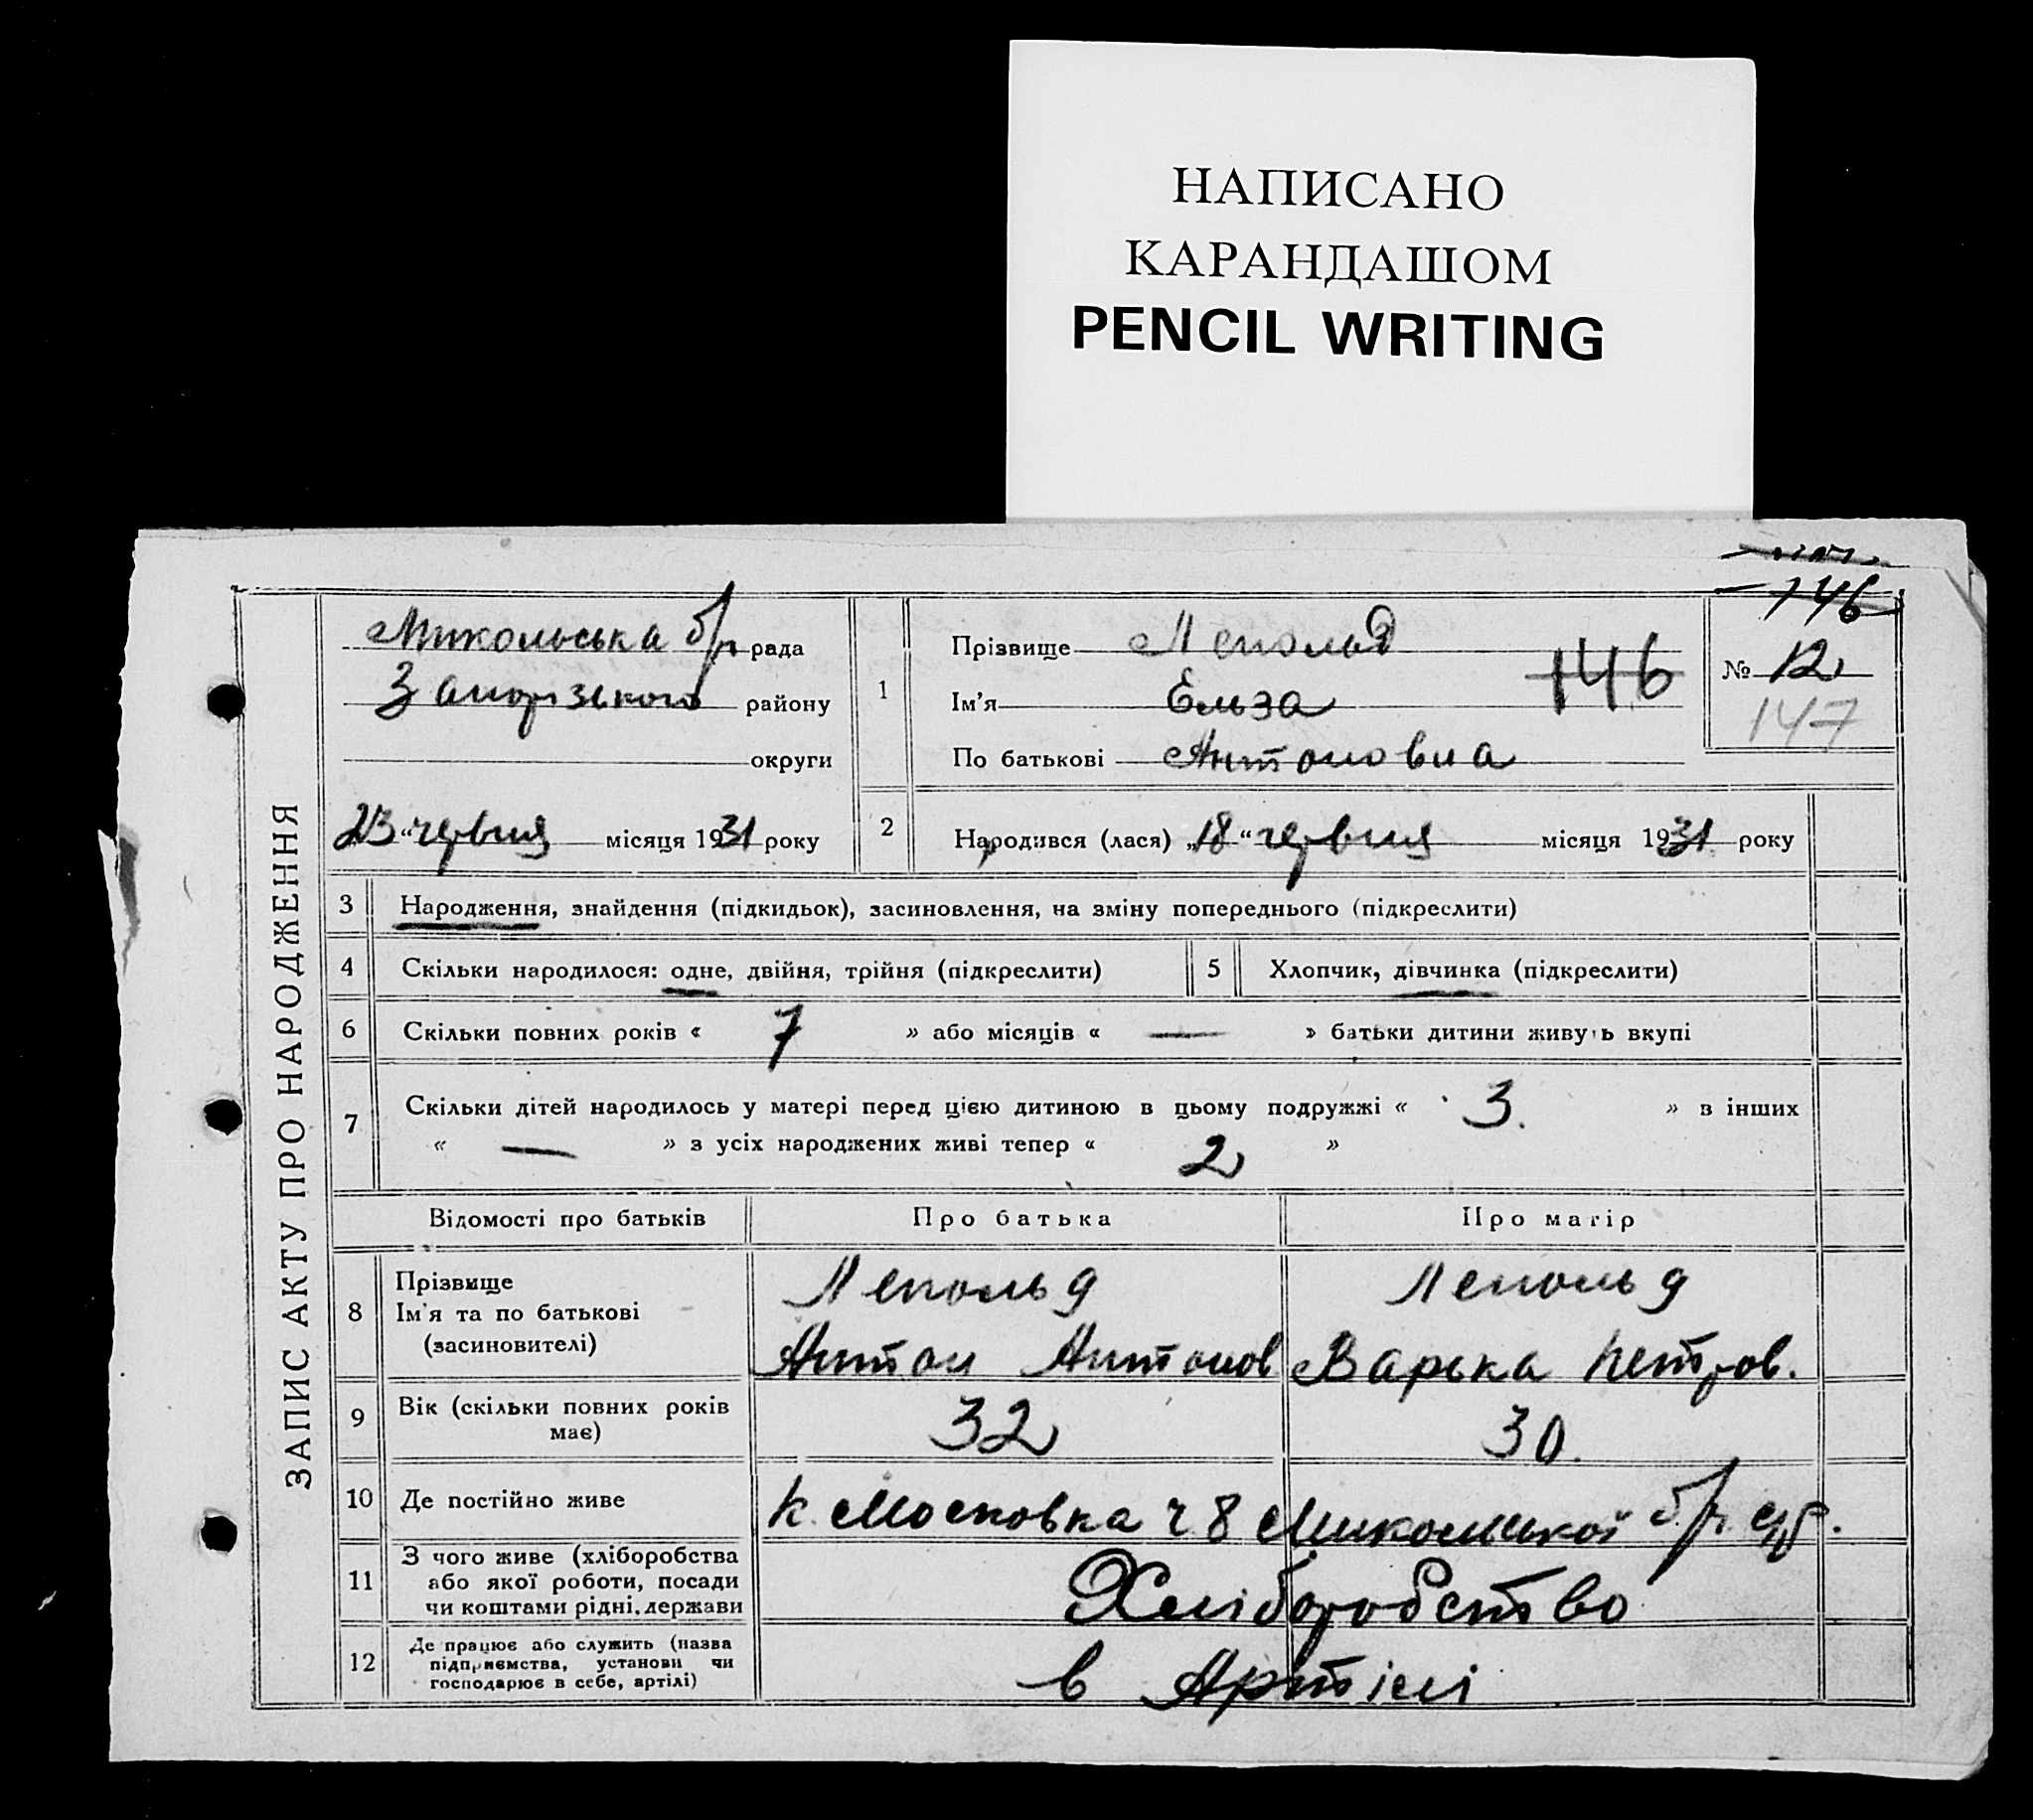 НАПИСАНО
КАРАНДАШОМ
PENCIL WRITING
ЗАПИС АКТУ ПРО НАРОДЖЕННЯ
Микольська б/р рада
Запорізького району
округи
„23“ червня місяця 1931 року
1
Прізвище Лепольд
Ім'я Ельза
По батькові Антоновна
146
146
№ 12
147
2
Народився (лася) „18“ червня місяця 1931 року
3 Народження, знайдення (підкидьок), засиновлення, на зміну попереднього (підкреслити)
4 Скільки народилося: одне, двійня, трійня (підкреслити) 5 Хлопчик, дівчинка (підкреслити)
6 Скільки повних років « 7 » або місяців « — » батьки дитини живуть вкупі
7 Скільки дітей народилось у матері перед цією дитиною в цьому подружжі « 3. » в інших
« — » з усіх народжених живі тепер « 2 »
Відомості про батьків Про батька Про матір
8 Прізвище
Ім'я та по батькові
(засиновителі)
Лепольд
Антон Антонов
Лепольд
Варька Петров.
9 Вік (скільки повних років
має)
32 30.
10 Де постійно живе к. Московка ч 8 Микольської б/р
11 З чого живе (хліборобства
або якої роботи, посади
чи коштами рідні, держави
Хліборобство
12 Де працює або служить (назва
підприємства, установи чи
господарює в себе, артілі)
в Артілі